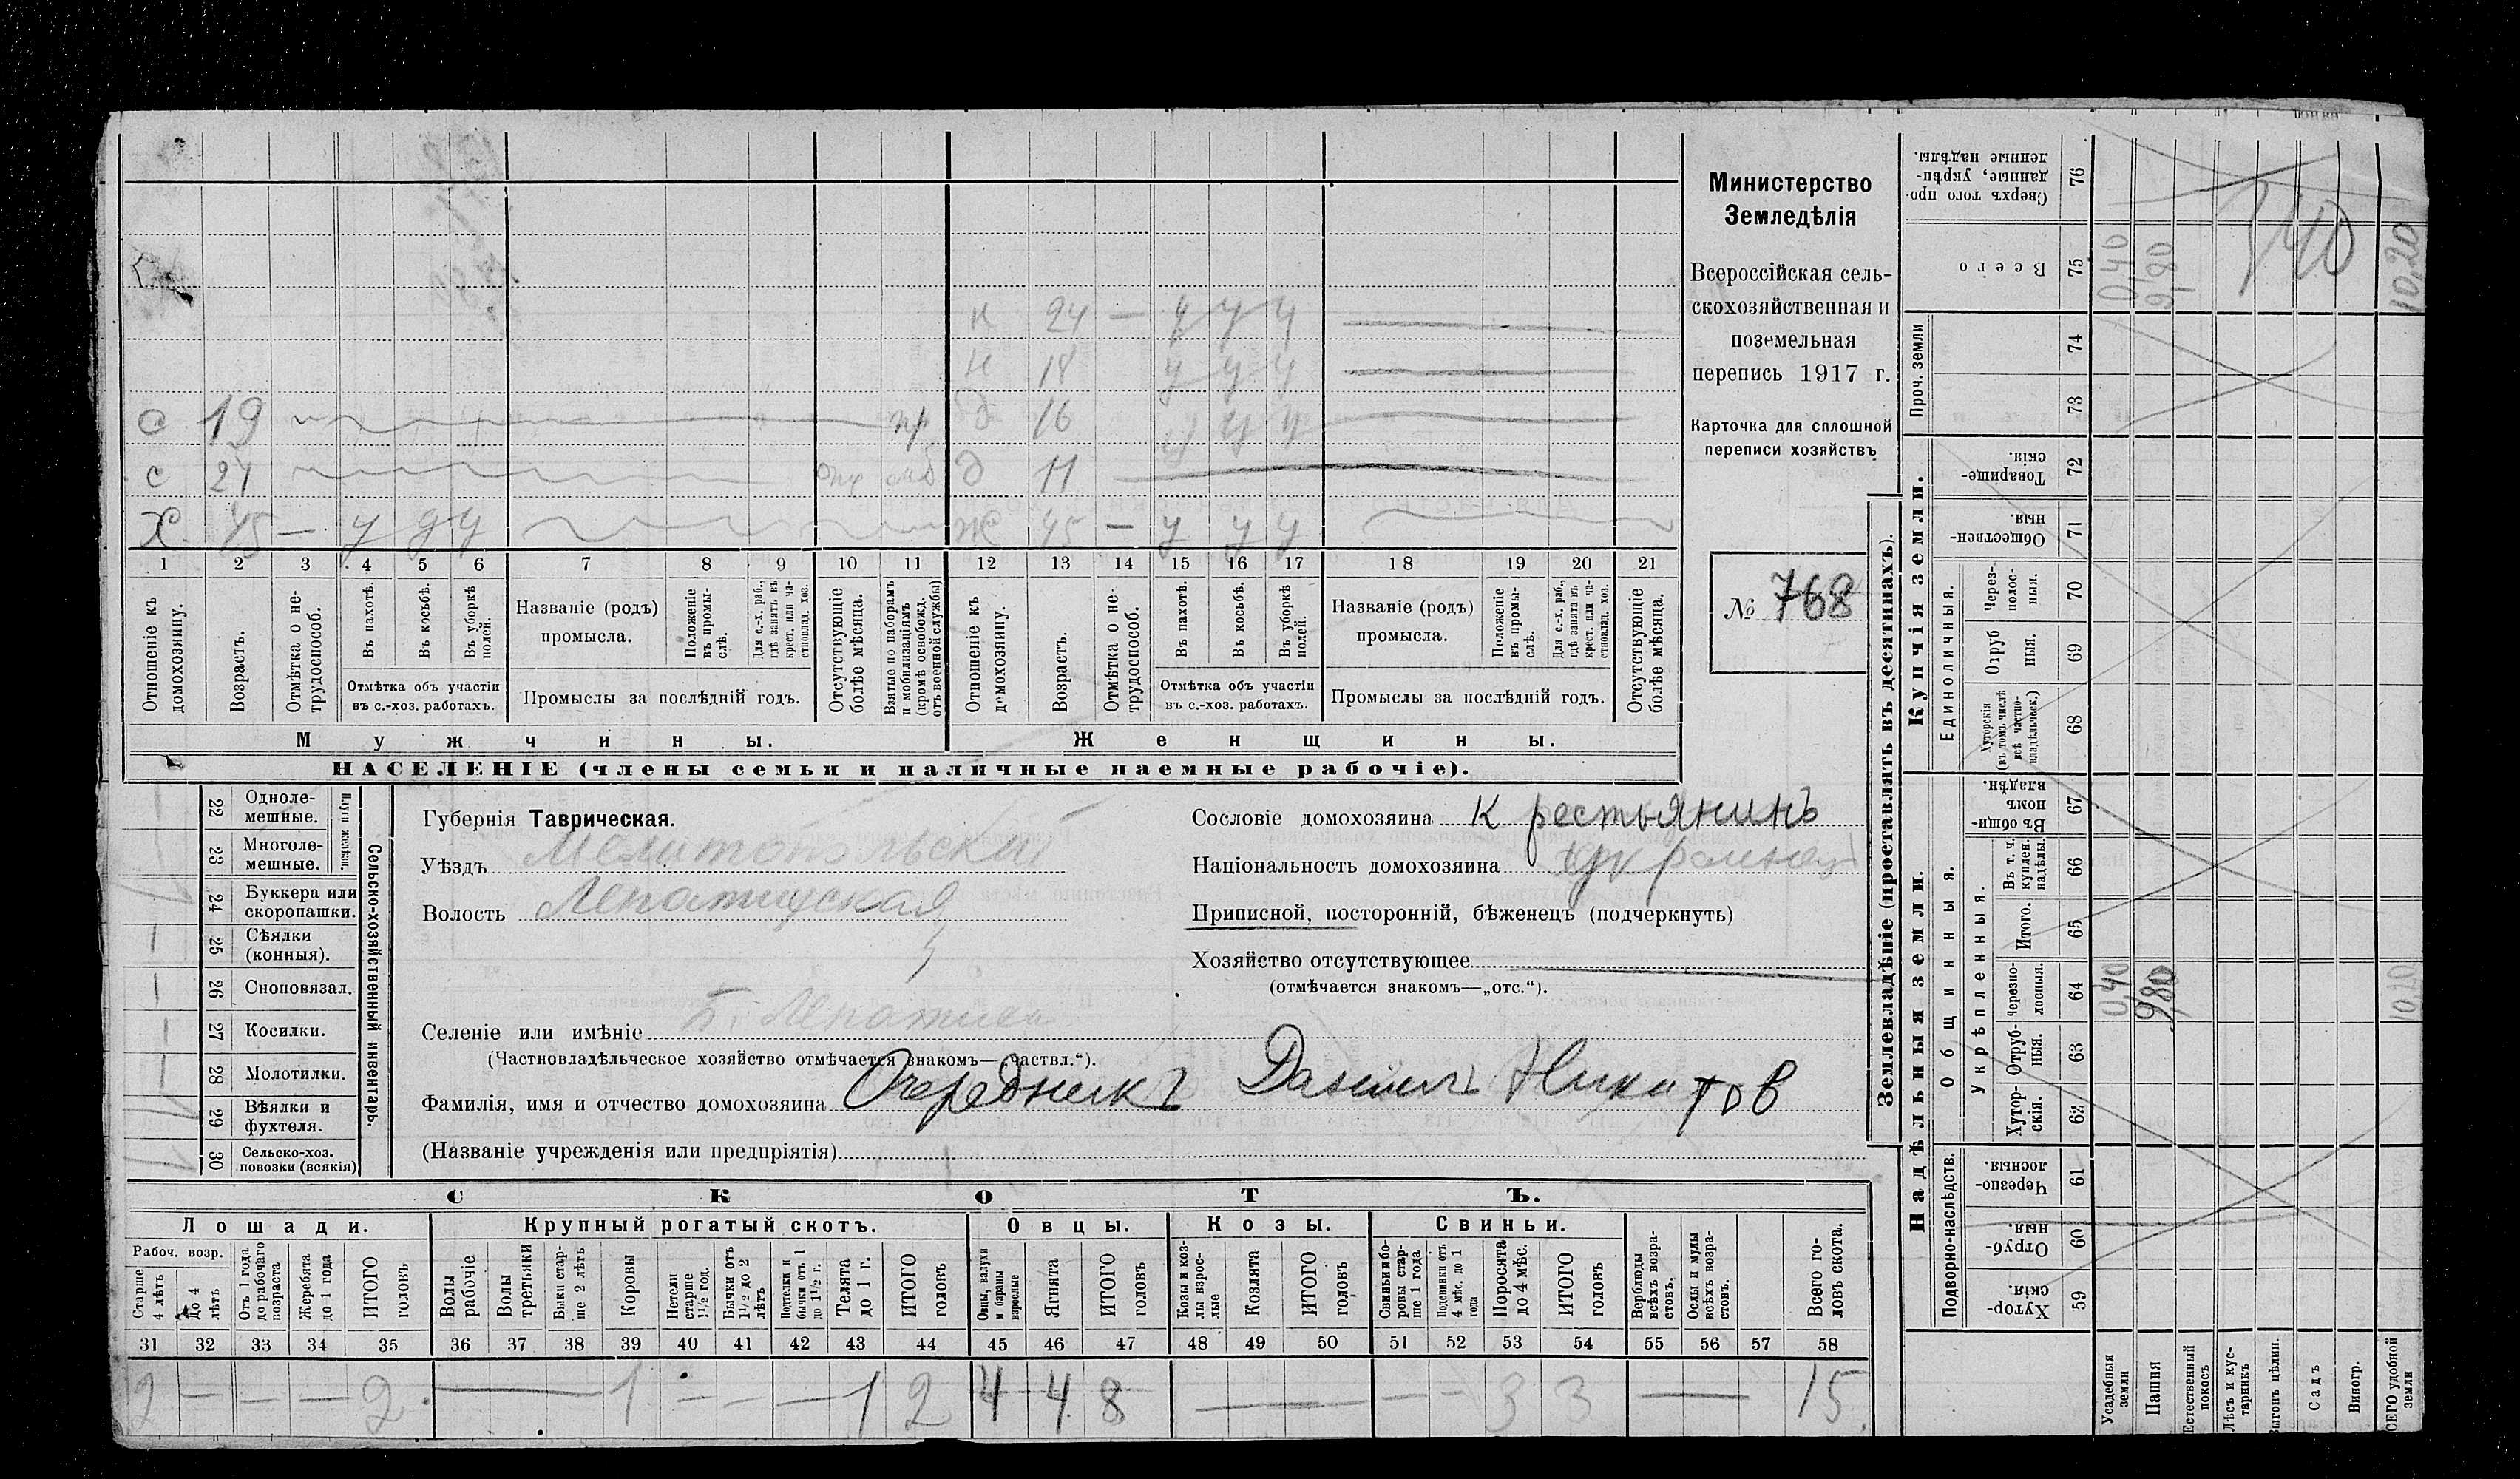 Министерство
Земледѣлія
Всероссійская сель-
скохозяйственная и
поземельная
перепись 1917 г.
Карточка для сплошной
переписи хозяйствъ
№ 768
н 24 — у у у
н 18 у у у
с 19 пр д 16 у у у
с 21 д 11
Х 45 — у у у ж 45 — у у у
1 2 3 4 5 6 7 8 9 10 11 12 13 14 15 16 17 18 19 20 21
Отношеніе къ домохозяину.
Возрастъ.
Отмѣтка о не-трудоспособ.
Въ пахотѣ.
Въ косьбѣ.
Въ уборкѣ полей.
Отмѣтка объ участіи въ с.-хоз. работахъ.
Названіе (родъ) промысла.
Положеніе въ промы-слѣ.
Для с.-х. раб., гдѣ занятъ въ крест. или ча-стновлад. хоз.
Промыслы за послѣдній годъ.
Отсутствующіе болѣе мѣсяца.
Взятые по наборамъ и мобилизаціямъ (кромѣ освобожд. отъ военной службы)
Отношеніе къ домохозяину.
Возрастъ.
Отмѣтка о не-трудоспособ.
Въ пахотѣ.
Въ косьбѣ.
Въ уборкѣ полей.
Отмѣтка объ участіи въ с.-хоз. работахъ.
Названіе (родъ) промысла.
Положеніе въ промы-слѣ.
Для с.-х. раб., гдѣ занята въ крест. или ча-стновлад. хоз.
Промыслы за послѣдній годъ.
Отсутствующіе болѣе мѣсяца.
Мужчины. Женщины.
НАСЕЛЕНІЕ (члены семьи и наличные наемные рабочіе).
Сельско-хозяйственный инвентарь.
Плуги желѣзн.
22 Одноле-мешные.
23 Многоле-мешные.
24 Буккера или скоропашки.
25 Сѣялки (конныя). 1
26 Сноповязал. 1
27 Косилки.
28 Молотилки.
29 Вѣялки и фухтеля.
30 Сельско-хоз. повозки (всякія)
Губернія Таврическая.
Уѣздъ Мелитопольскій
Волость Лепатицская
Селеніе или имѣніе Б. Лепатиха
(Частновладѣльческое хозяйство отмѣчается знакомъ—„частвл.“).
Фамилія, имя и отчество домохозяина Очередникъ Данiилъ Никитов
(Названіе учрежденія или предпріятія)
Сословіе домохозяина Крестьянинъ
Національность домохозяина украинец
Приписной, посторонній, бѣженецъ (подчеркнуть)
Хозяйство отсутствующее
(отмѣчается знакомъ—„отс.“).
СКОТЪ.
Лошади. Крупный рогатый скотъ. Овцы. Козы. Свиньи.
Рабоч. возр.
Старше 4 лѣтъ
До 4 лѣтъ
Отъ 1 года до рабочаго возраста
Жеребята до 1 года
ИТОГО головъ
Волы рабочіе
Волы третьяки
Быки стар-ше 2 лѣтъ
Коровы
Нетели старше 1½ год.
Бычки отъ 1½ до 2 лѣтъ
Подтелки и бычки отъ 1 до 1½ г.
Телята до 1 г.
ИТОГО головъ
Овцы, валухи и бараны взрослые
Ягнята
ИТОГО головъ
Козы и коз-лы взрос-лые
Козлята
ИТОГО головъ
Свиньи и бо-ровы стар-ше 1 года
Подсвинки отъ 4 мѣс. до 1 года
Поросята до 4 мѣс.
ИТОГО головъ
Верблюды всѣхъ возра-стовъ.
Ослы и мулы всѣхъ возра-стовъ.
Всего го-ловъ скота.
31 32 33 34 35 36 37 38 39 40 41 42 43 44 45 46 47 48 49 50 51 52 53 54 55 56 57 58
2 — — — 2 — 1 — — — 1 2 4 4 8 — — — — — 3 3 — 15
Землевладѣніе (проставлять въ десятинахъ).
Купчія земли.
Надѣльныя земли.
Проч. земли
Единоличныя.
Общинныя.
Укрѣпленныя.
Подворно-наслѣдств.
76 Сверхъ того про-данные, укрѣп-ленные надѣлы.
75 Всего 0,40 9,80 340 10,20
74
73
72 Товарище-скія.
71 Обществен-ныя.
70 Через-полос-ныя.
69 Отруб ныя.
68 Хуторскія (въ томъ числѣ всѣ частно-владѣльческ.)
67 Въ общи-номъ владѣн.
66 Въ т. ч. куплен. надѣлы.
65 Итого.
64 Черезпо-лосныя. 0,40 9,80 10,20
63 Отруб-ныя.
62 Хутор-скія.
61 Черезпо-лосныя.
60 Отруб-ныя.
59 Хутор-скія.
Усадебныя земли
Пашня
Естественный покосъ
Лѣсъ и кус-тарникъ
Выгонъ цѣлин.
Садъ
Виногр.
ВСЕГО удобной земли